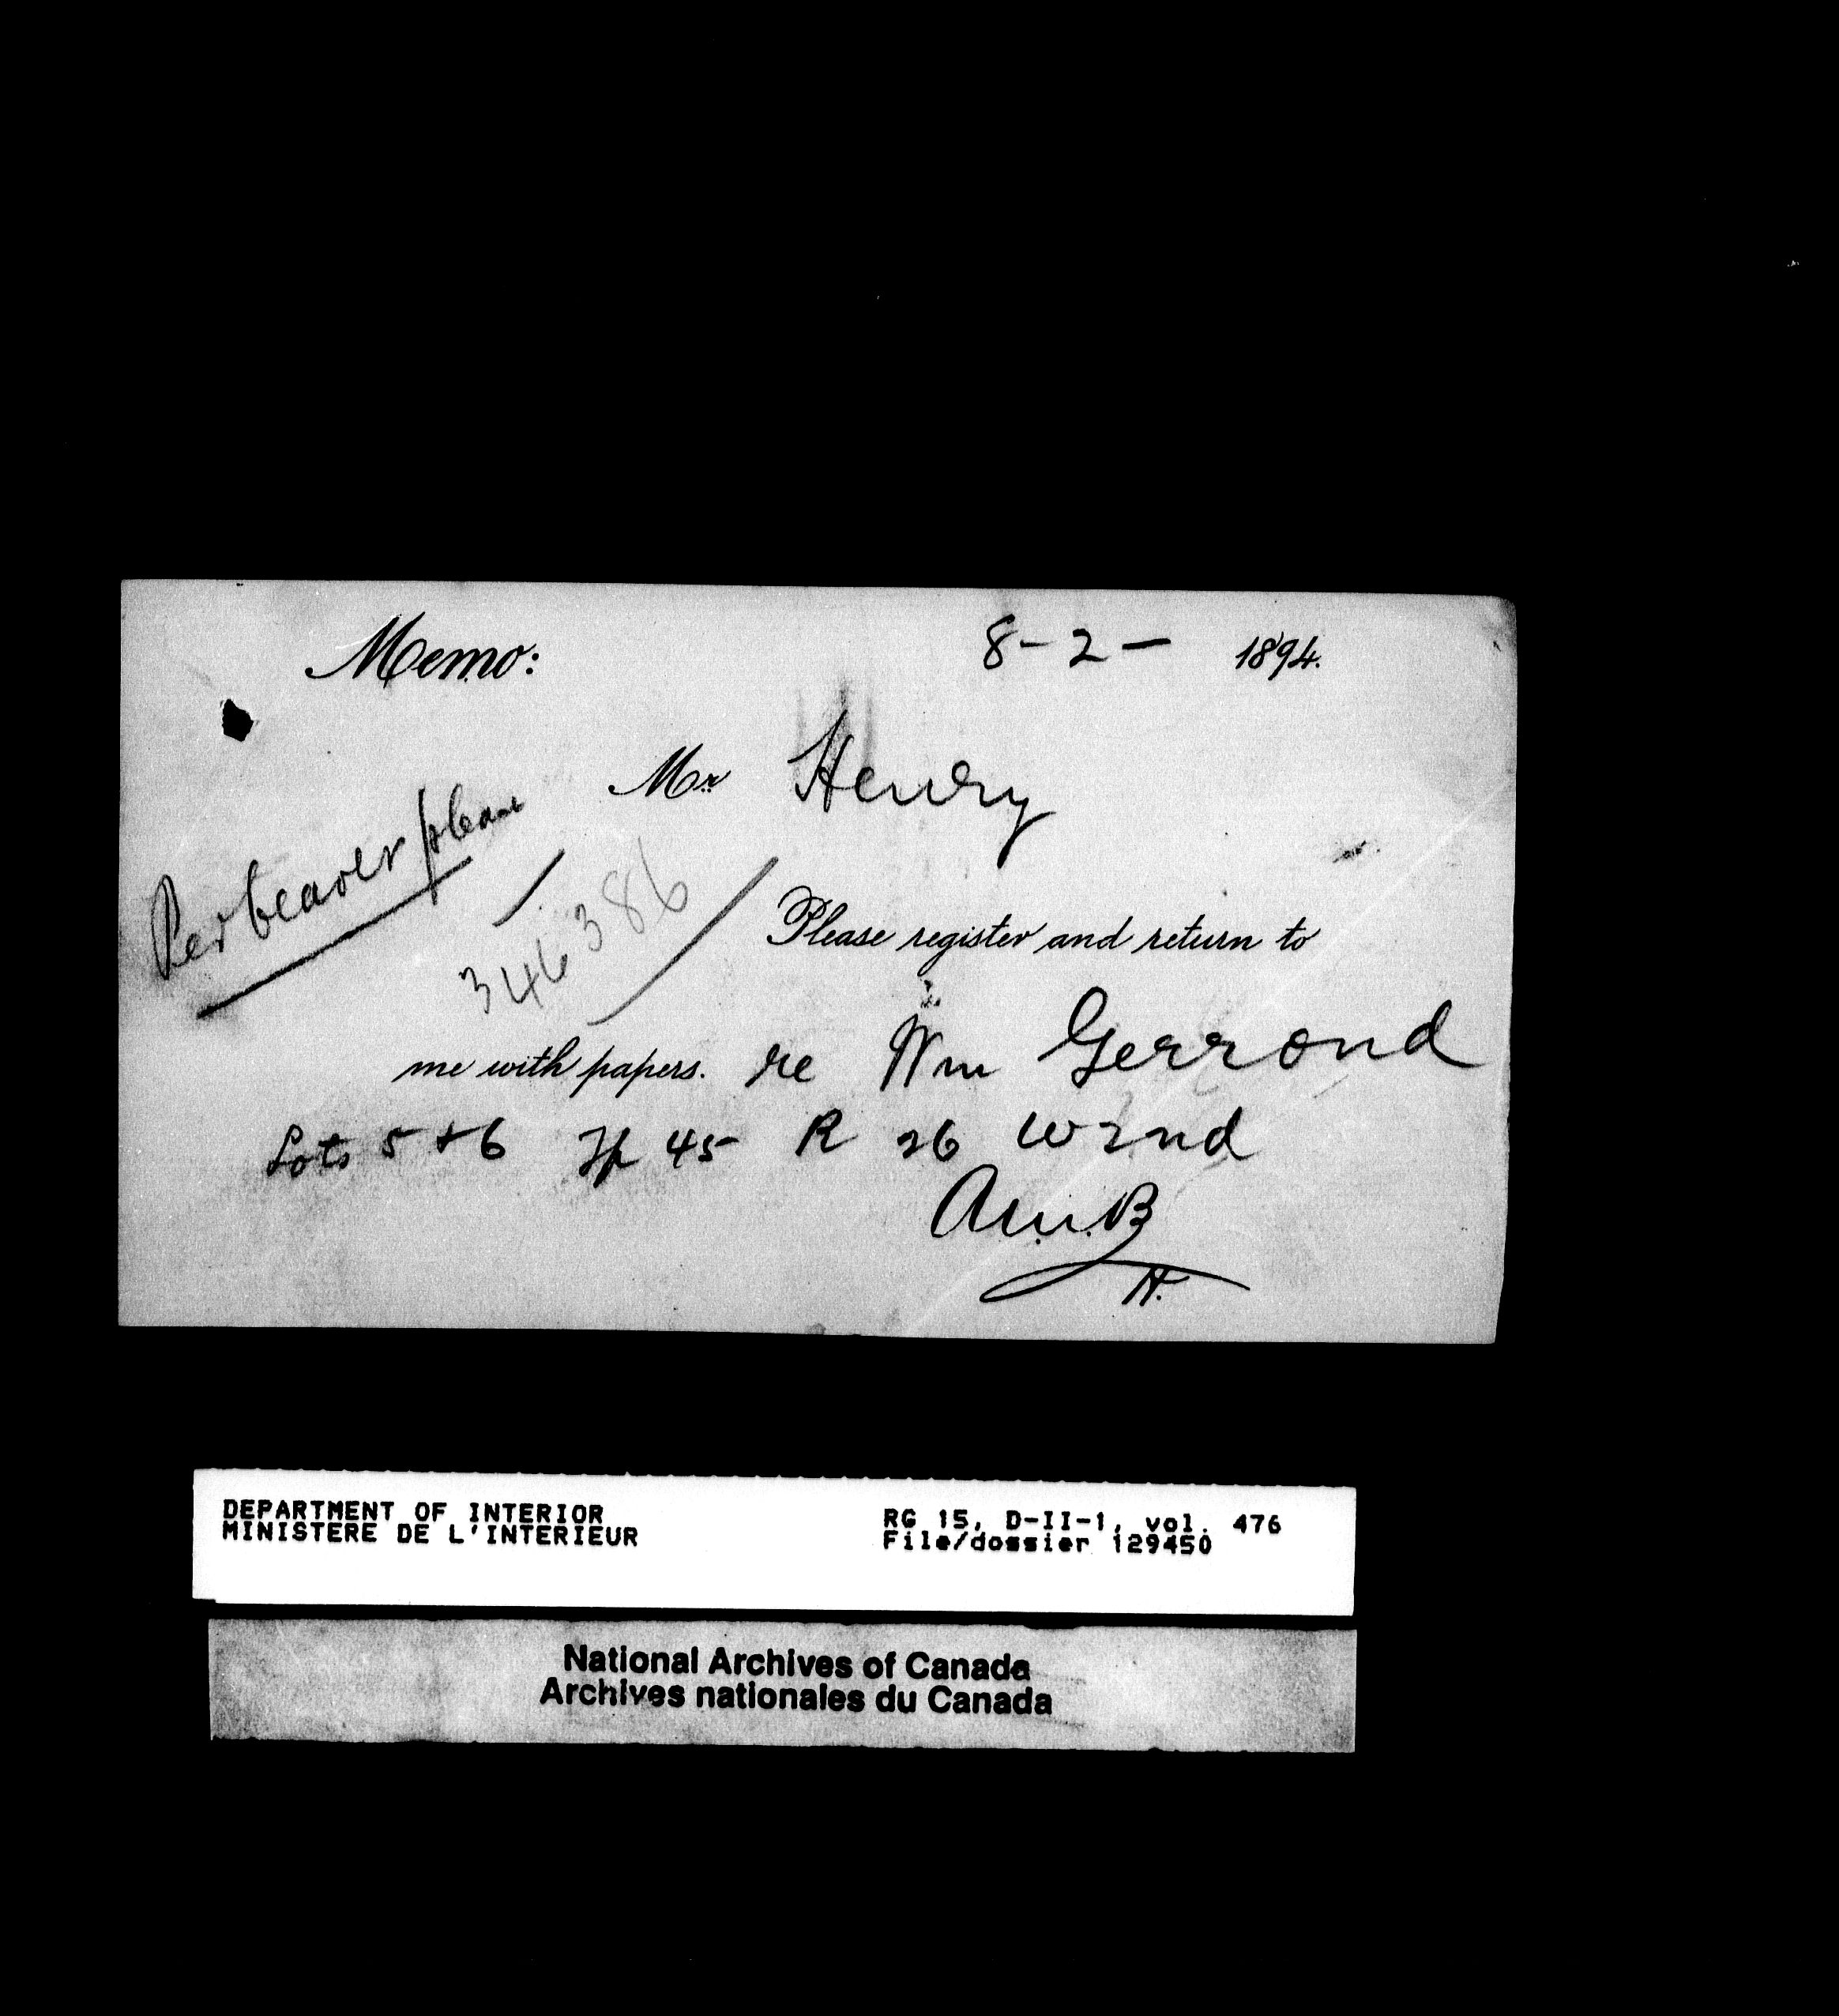 Memo: 8-2- 1894.
Mr Henry
Per bearer please
346386
Please register and return to
me with papers. re Wm Gerrond
Lots 5 + 6 Tp 45 R 26 W2nd
A.M.B
H.
DEPARTMENT OF INTERIOR RG 15, D-II-1, vol. 476
MINISTERE DE L'INTERIEUR File/dossier 129450
National Archives of Canada
Archives nationales du Canada